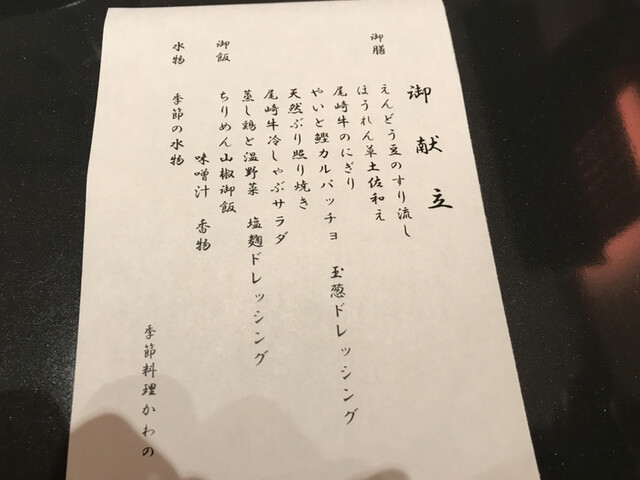 御献立
御膳
えんどう豆のすり流し
ほうれん草土佐和え
尾崎牛のにぎり
やいと鰹カルパッチョ　玉葱ドレッシング
天然ぶり照り焼き
尾崎牛冷しゃぶサラダ
蒸し鶏と温野菜　塩麹ドレッシング
御飯　ちりめん山椒御飯
味噌汁　香物
水物　季節の水物
季節料理かわの